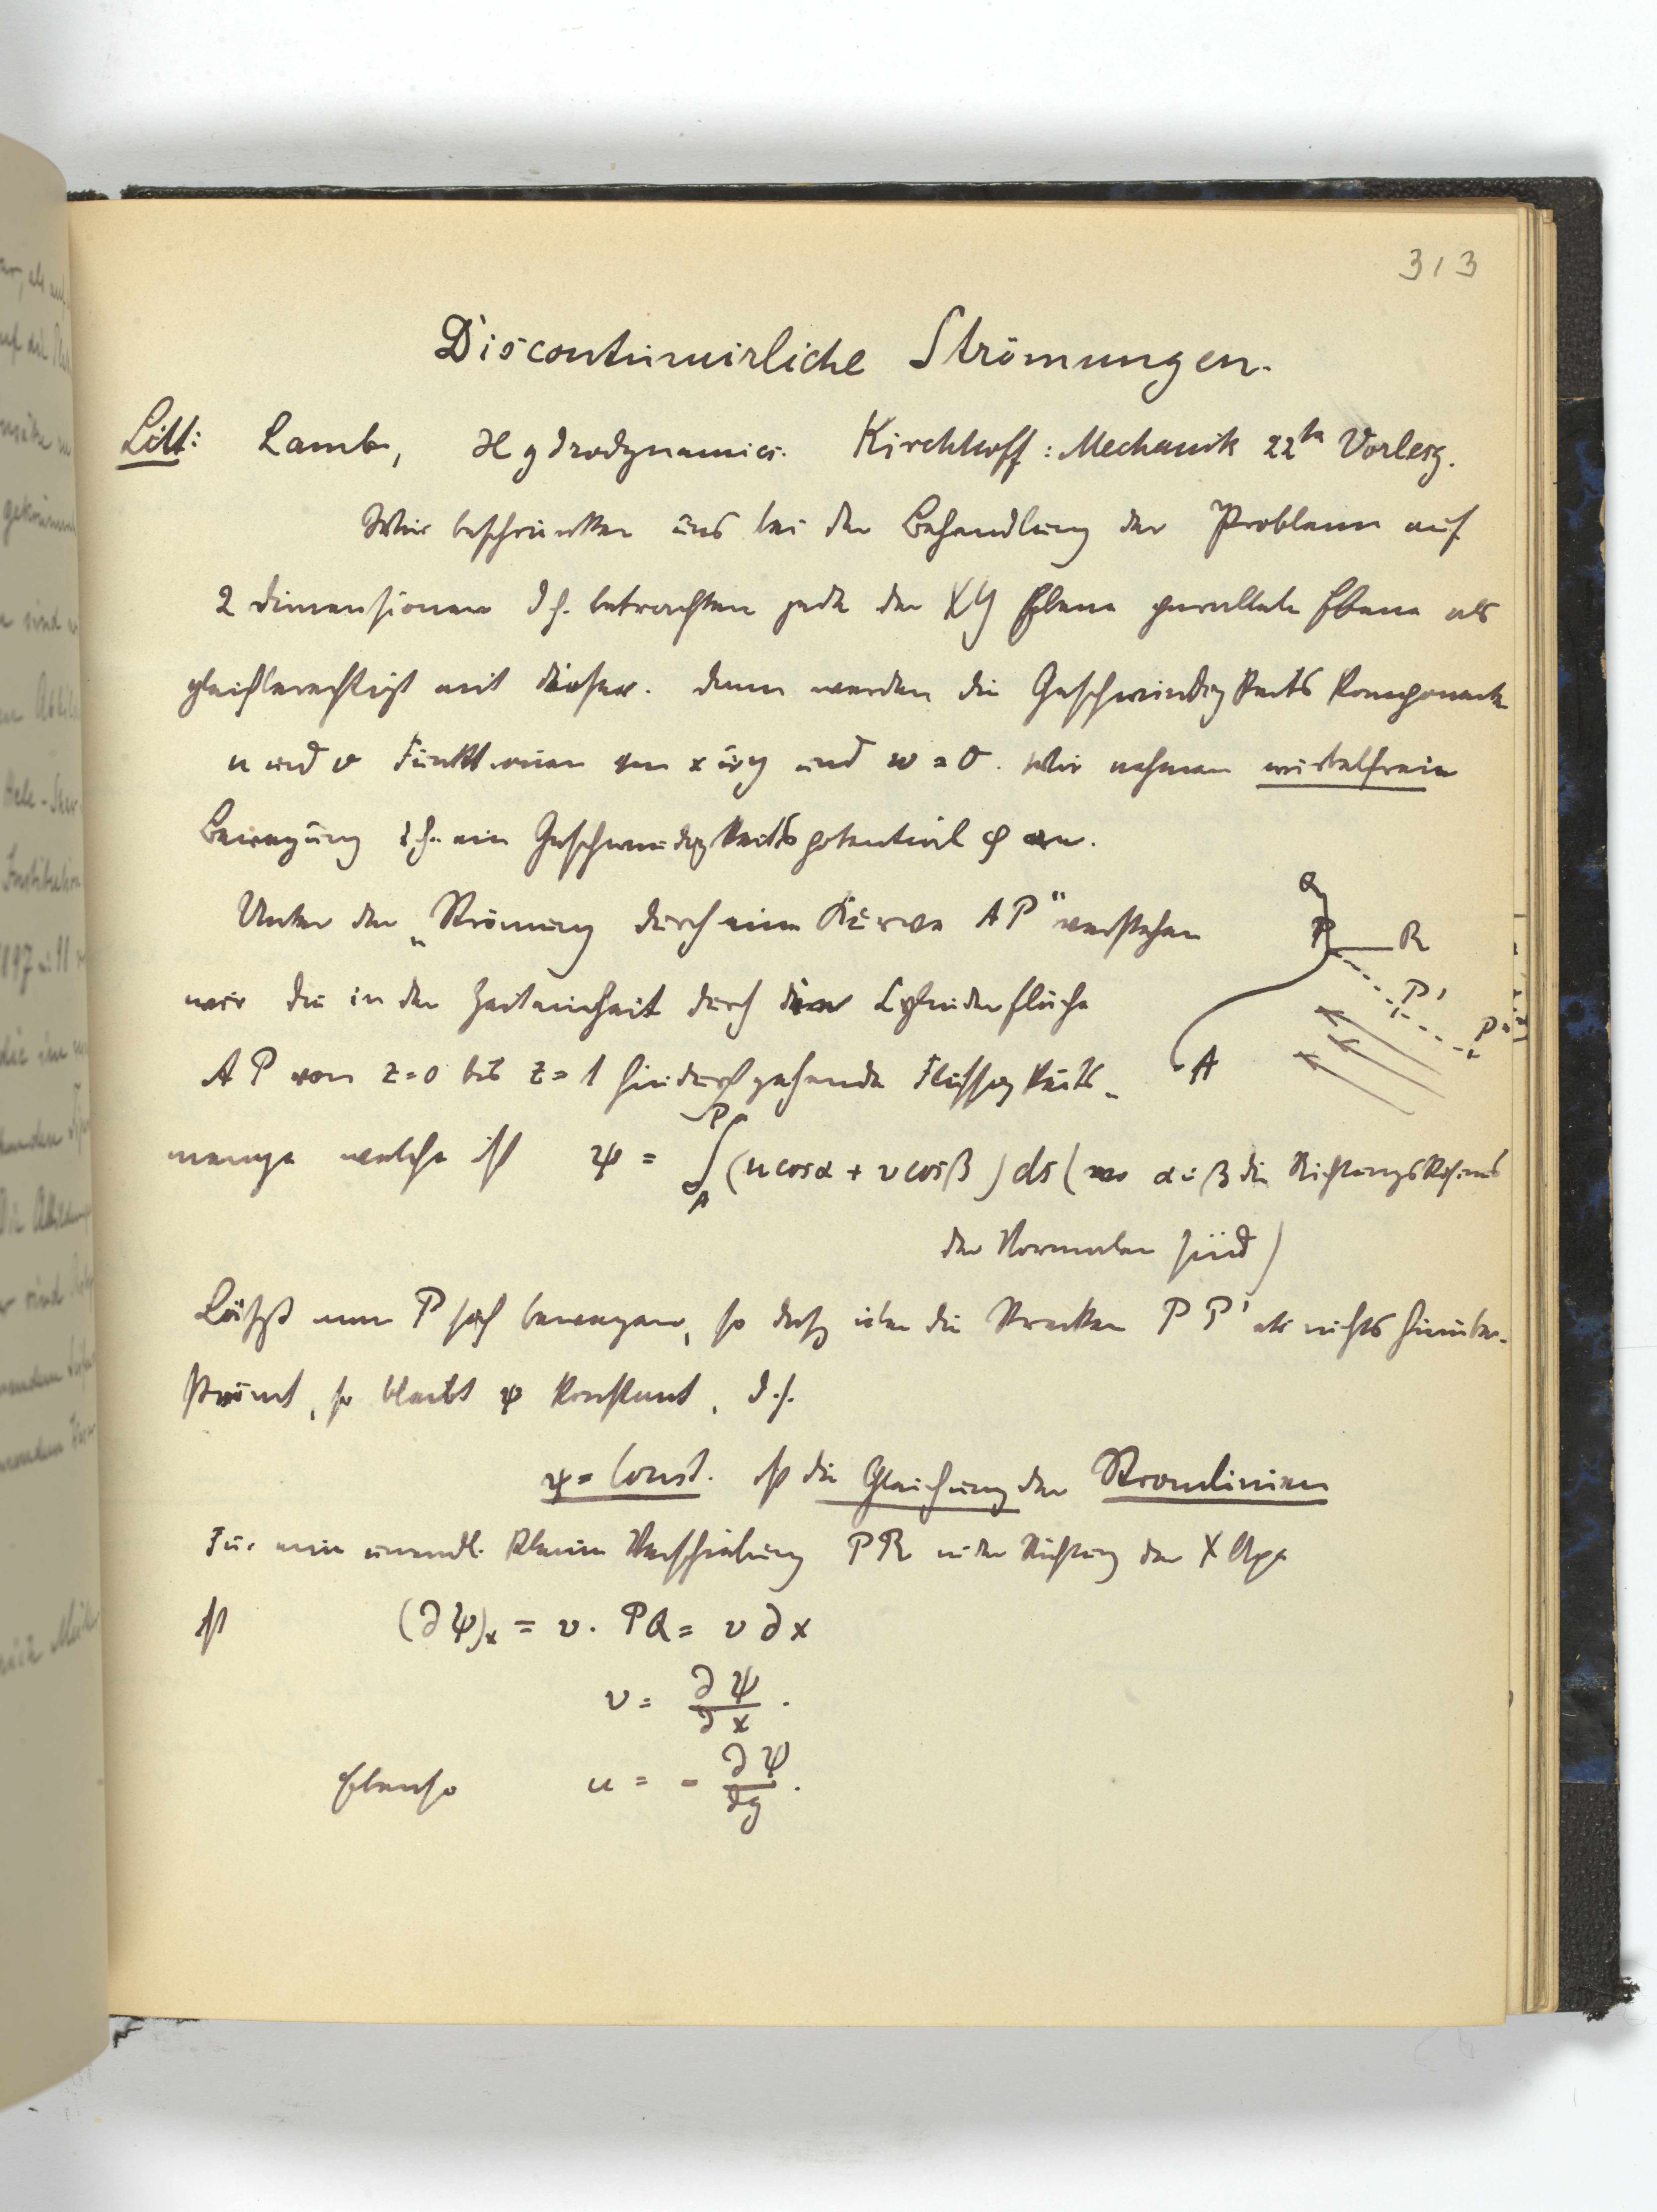 313
Discontinuirliche Strömungen.
Litt: Lamb, Hydrodynamics. Kirchhoff: Mechanik 22te Vorlesg.
Wir beschränken uns bei der Behandlung der Probleme auf
2 Dimensionen d.h. betrachten jede der XY Ebene parallele Ebene als
gleichberechtigt mit dieser. Dann werden die Geschwindigkeits Komponenten
u und v Funktionen von x u y und w = 0. Wir nehmen wirbelfreie
Bewegung d.h. ein Geschwindigkeitspotential φ an.
Unter der „Strömung durch eine Kurve AP" verstehen
wir die in der Zeiteinheit durch die Cylinderfläche
AP von z=0 bis z=1 hindurchgehende Flüssigkeits-
menge welche ist ψ = ∫_A^P (u cosα + v cosβ) ds (wo α u β die Richtungskosinus
der Normalen sind)
Q
P R
P'
P''
A
Läßt man P sich bewegen, so daß über die Strecken PP' etc nichts hinüber-
strömt, so bleibt ψ konstant, d.h.
ψ = Const. ist die Gleichung der Stromlinien
Für eine unendl. kleine Verschiebung PR in der Richtung der X Axe
ist (∂ψ)x = v. PQ = v ∂x
v = ∂ψ/∂x.
Ebenso u = - ∂ψ/∂y.